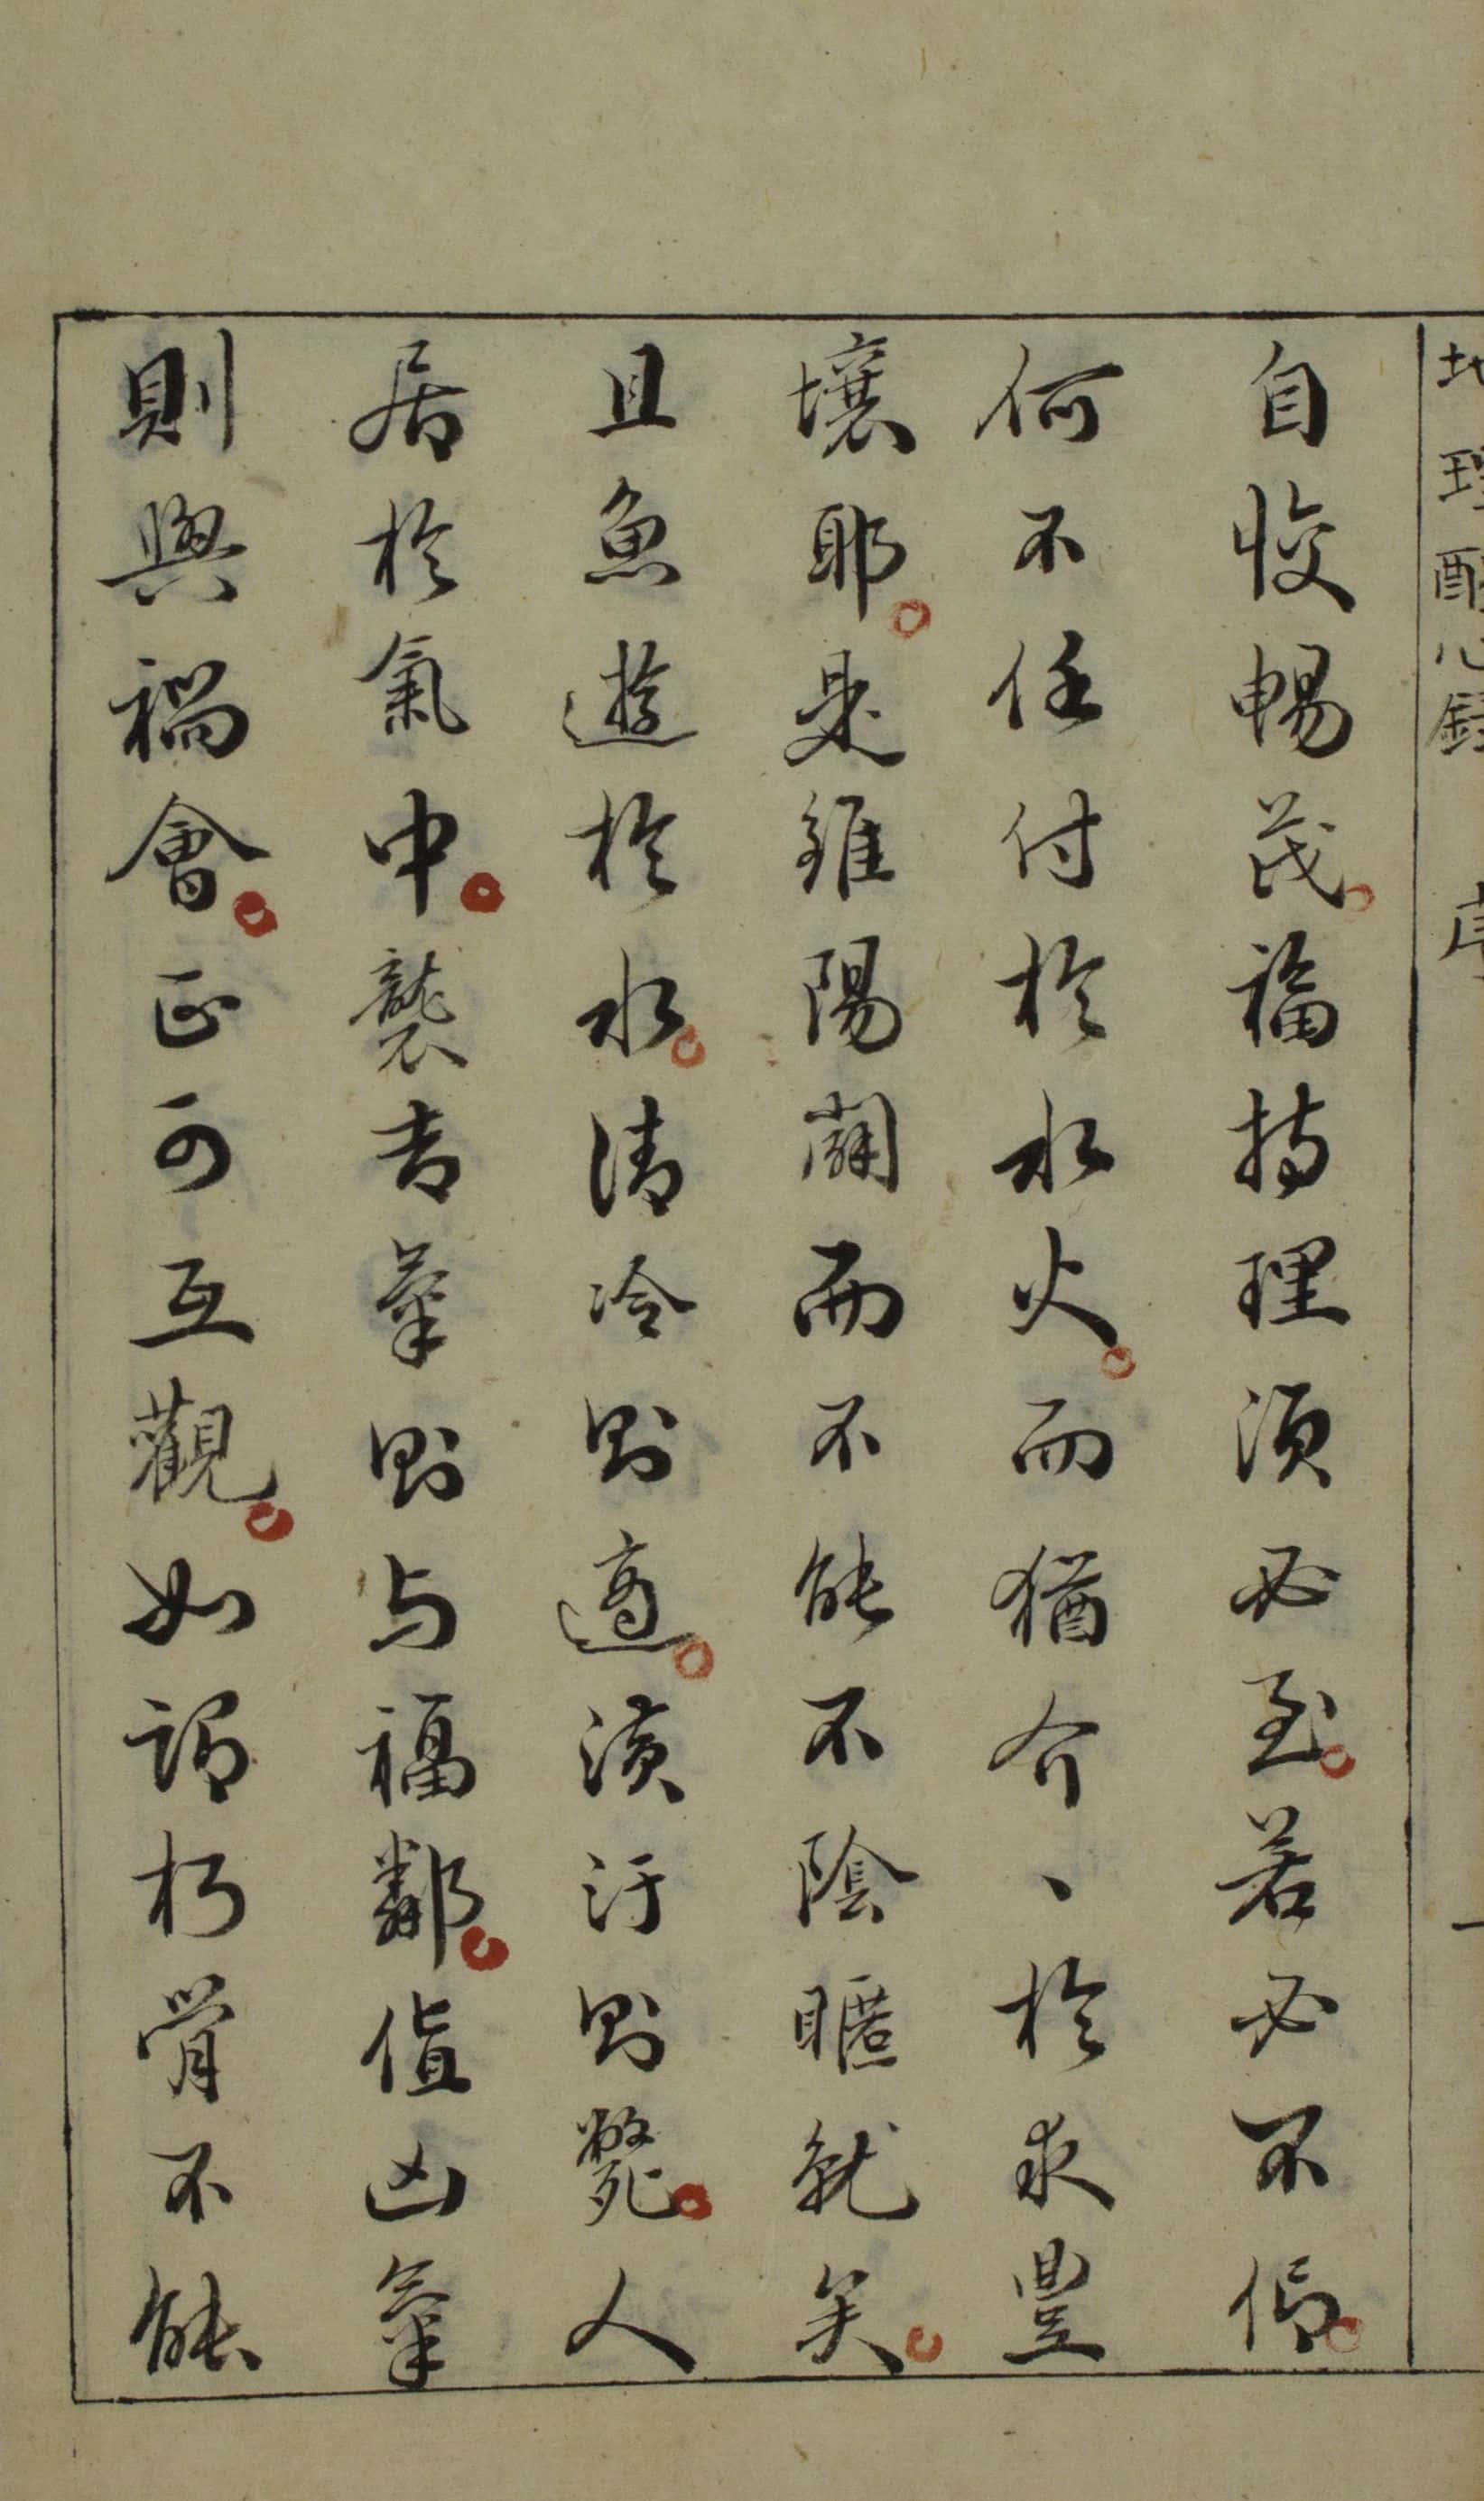 地理醒心錄 序 一
自悛暢茂福持理須必至若必不信
何不任付於水火而猶介、於求豐
壤耶是雖陽闢而不能不陰暱就矣
且魚遊於水清冷則適濆汙則斃人
居於氣中襲吉氣則与福鄰值凶氣
則與禍會正可互觀如謂朽骨不能